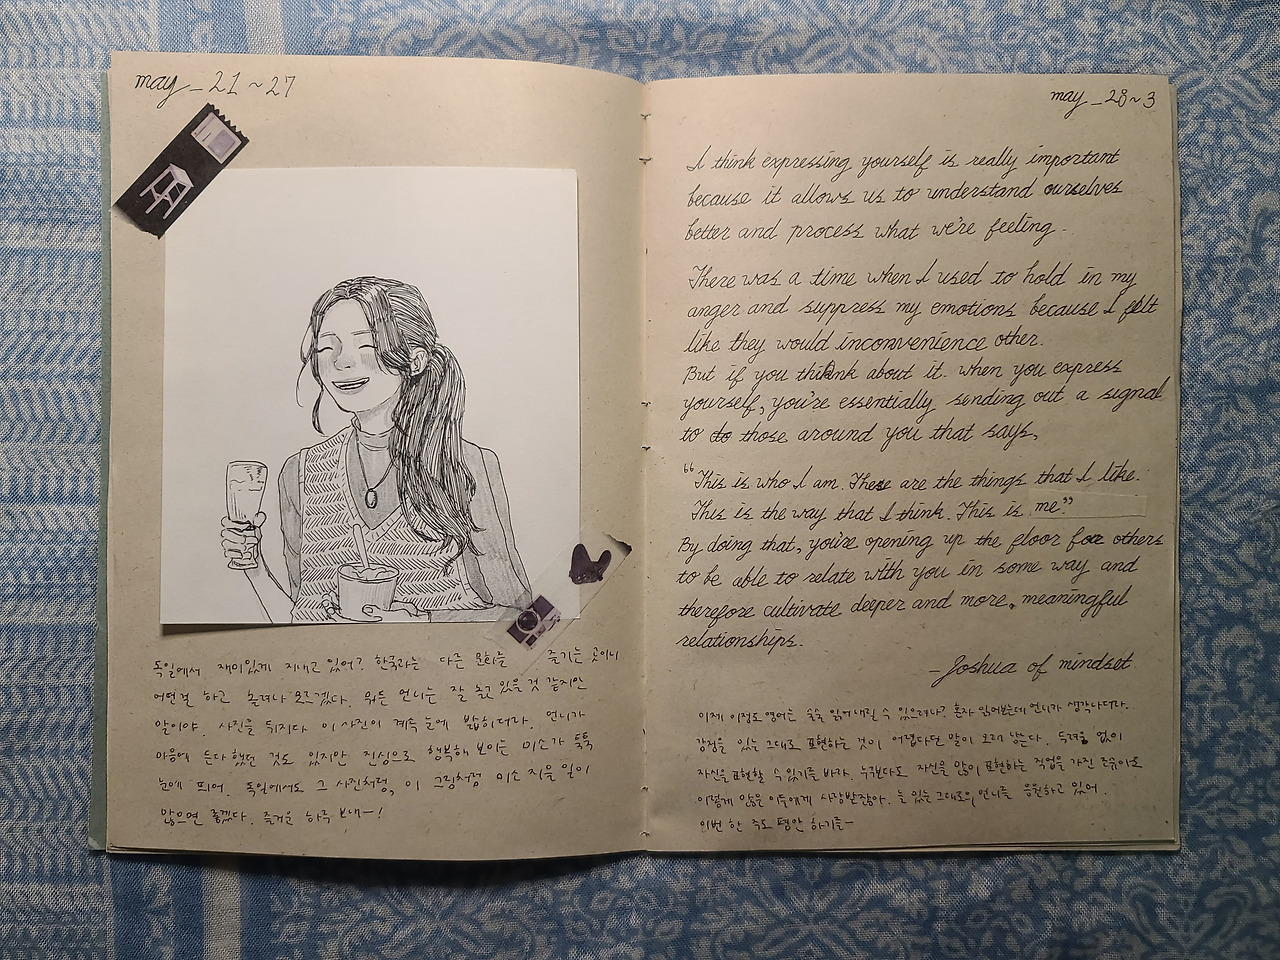 may_21~27
독일에서 재미있게 지내고 있어? 한국과는 다른 문화를 즐기는 곳이니
어떤걸 하고 올려나 모르겠다. 뭐든 언니는 잘 놀고 있을 것 같지만
말이야. 사진을 뒤지다 이 사진이 계속 눈에 밟히더라. 언니가
마음에 든다 했던 것도 있지만 진심으로 행복해 보이는 미소가 툭툭
눈에 띄어. 독일에서도 그 사진처럼, 이 그림처럼 미소 지을 일이
많으면 좋겠다. 즐거운 하루 보내-!
may_28~3
I think expressing yourself is really important
because it allows us to understand ourselves
better and process what we're feeling.
There was a time when I used to hold in my
anger and suppress my emotions because I felt
like they would inconvenience other.
But if you think about it. when you express
yourself, you're essentially sending out a signal
to do those around you that says,
"This is who I am. These are the things that I like.
This is the way that I think. This is me."
By doing that, you're opening up the floor for others
to be able to relate with you in some way and
therefore cultivate deeper and more, meaningful
relationships.
-Joshua of mindset
이제 이정도 영어는 술술 읽어내릴 수 있으려나? 혼자 읽어보는데 언니가 생각나더라.
감정을 있는 그대로 표현하는 것이 어렵다던 말이 오래 남는다. 두려움 없이
자신을 표현할 수 있기를 바라. 누구보다도 자신을 많이 표현하는 직업을 가진 조슈아도
이렇게 많은 이들에게 사랑받잖아. 늘 있는 그대로의 언니를 응원하고 있어.
이번 한 주도 평안 하기를-